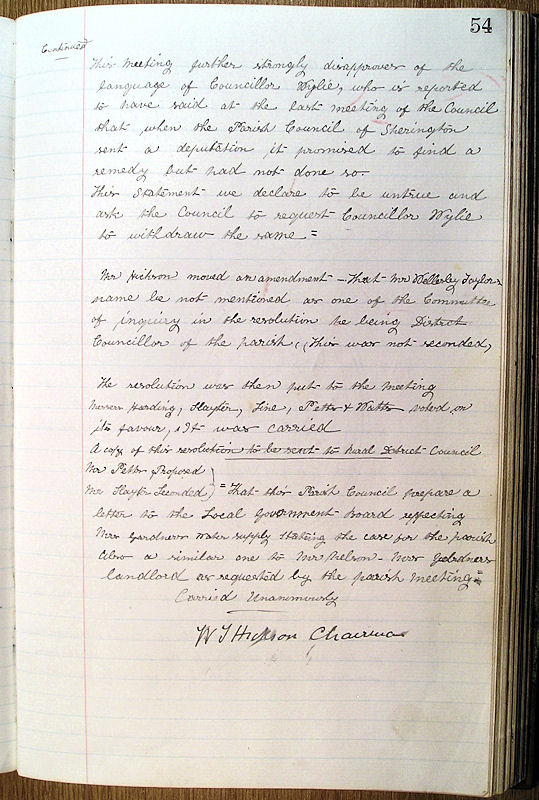 54
Continued
This Meeting further strongly disapproves of the
language of Councillor Wylie, who is reported
to have said at the last meeting of the Council
that, when the Parish Council of Sherington
sent a deputation it promised to find a
remedy but had not done so.
This Statement we declare to be untrue and
ask the Council to request Councillor Wylie
to withdraw the same =
Mr Hickson moved an amendment - That Mr Wellesley Taylors
name be not mentioned as one of the Committee
of inquiry in the resolution he being District
Councillor of the parish, (This was not seconded,
The resolution was then put to the meeting
Messrs Harding, Hayter, Line, Petts & Watts voted in
its favour, & It was carried
A copy of this resolution to be sent to Rural District Council
Mr Petts Proposed
Mr Hayter Seconded } = That this Parish Council prepare a
letter to the Local Government Board respecting
Mrs Gardners water supply stating the case for the parish
also a similar one to Mr Nelson - Mrs Gardners
landlord as requested by the parish meeting =
Carried Unanimously
W J Hickson Chairman